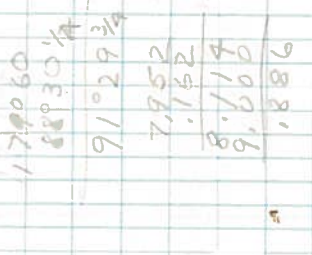 179°60
88°30 1/4
91°29 3/4
7.952
.162
8.114
9.000
.886